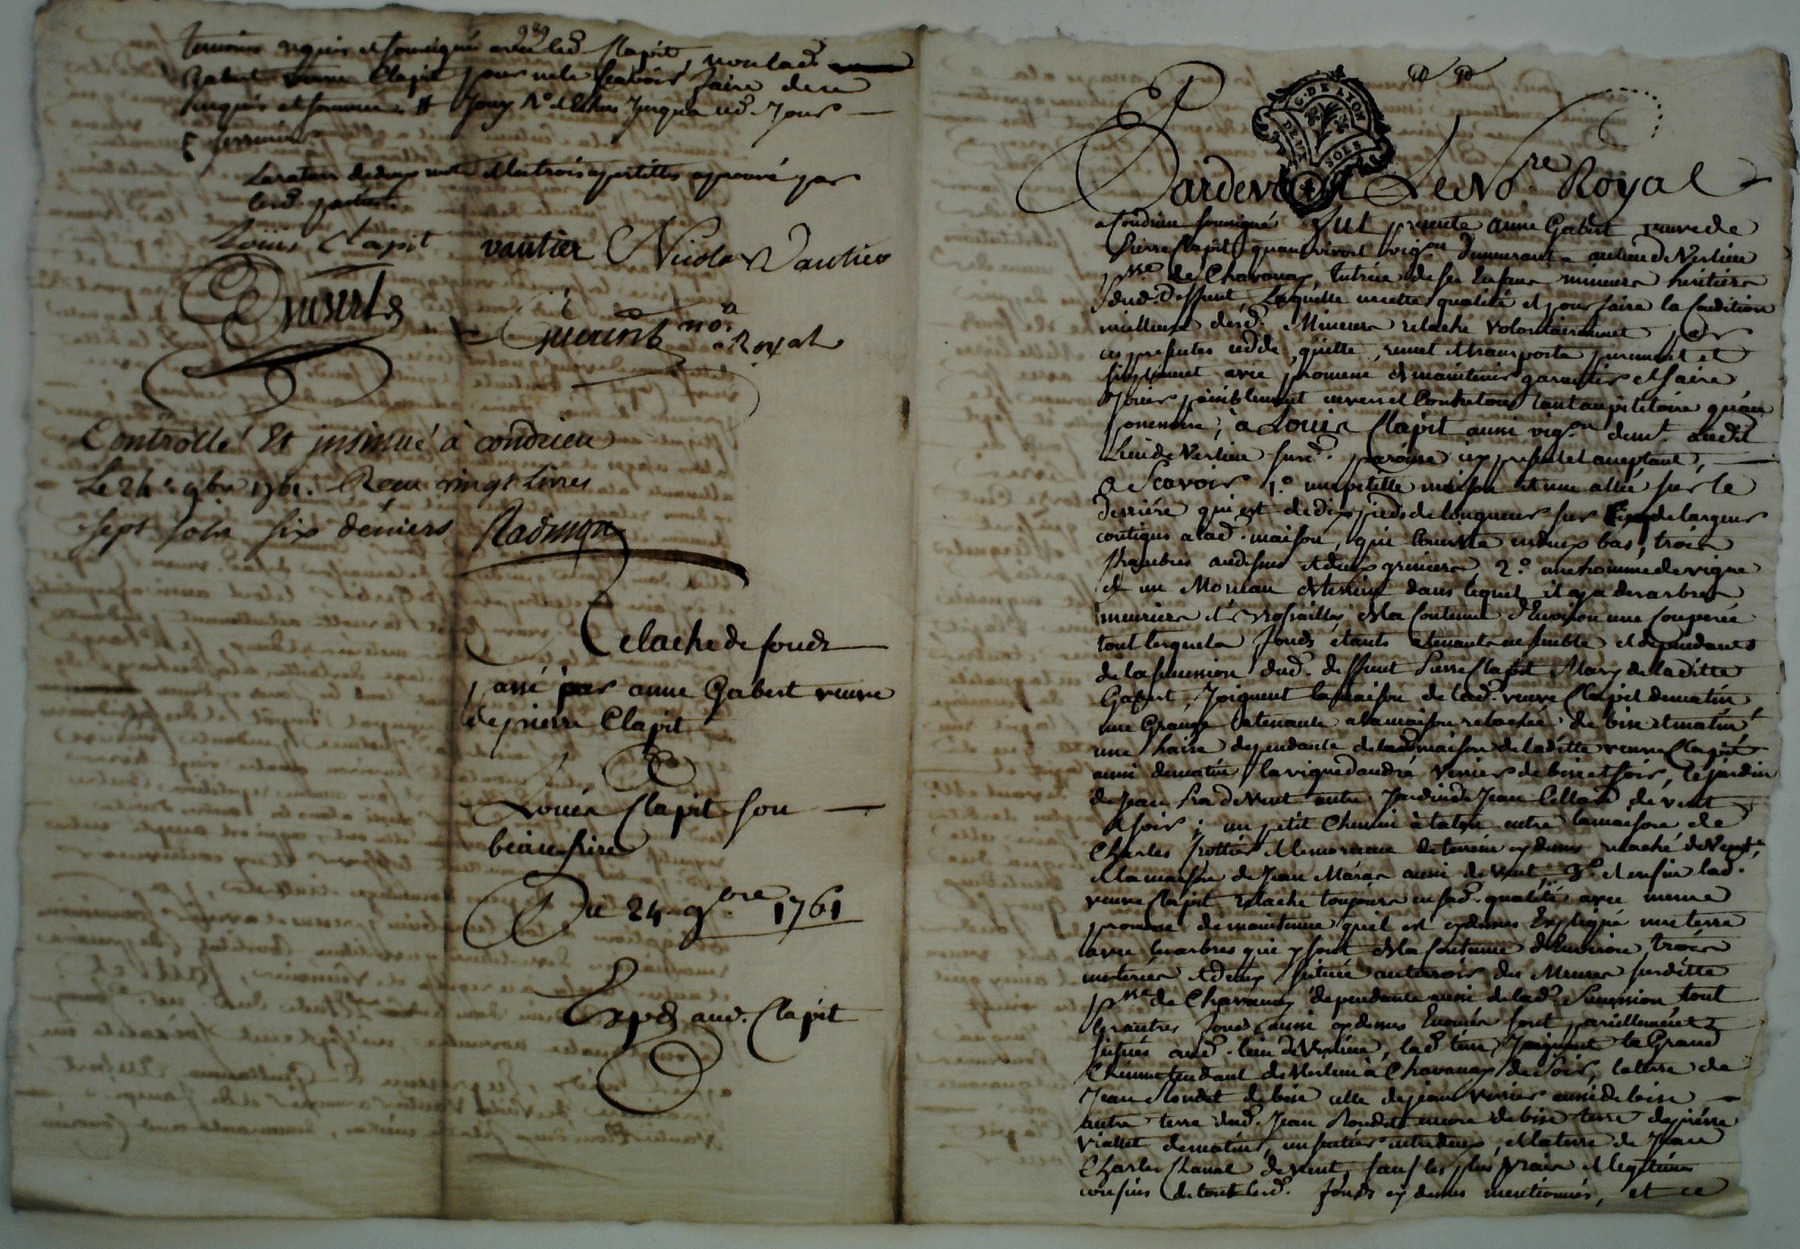 temoins requis et soussignés avec led. Clapit, non lad.
Gabert veuve Clapit pour ne le scavoir faire de ce
enquise et sommée jusqua ced. jour
La rature de deux mots et les trois apostilles approuvé par
lesd. parties
Louis Clapit vautier Nicolas Vautier
nore
Royal
Controllé Et insinué à condrieu
Le 24e 9bre 1761. Reçu vingt Livres
sept sols six deniers
Relache de fonds
passé par anne Gabert veuve
de pierre Clapit
A
Louis Clapit son
beaufrere
Du 24 9bre 1761
Expé. aud. Clapit
G. DE LYON
DEUX SOLS
Pardevant Le Nore Royal
a Condrieu soussigné fut presente anne Gabert veuve de
Pierre Clapit quand vivoit vigon demeurant au lieu de Verlieu
psse de Chavanay, tutrice de ses Enfans mineurs héritiers
dud. deffunt Laquelle en cette qualité et pour faire la Condition
meilleure desd. Mineurs relache volontairement par
ces presentes cedde, quitte, remet et transporte purement et
simplement avec promesse de maintenir garantir et faire
jouir paisiblement envers et Contre tous tant au petitoire qu'au
possessoire; à Louis Clapit aussi vigon demt. audit
Lieu de Verlieu susd. paroisse icy present et acceptant,
a Scavoir 1.º une petitte maison et une allée sur le
derriére qui est de dix pieds de longueur sur de largeur
contigue a lad. maison, qui Consiste en deux bas, trois
chambres audessus et deux greniers 2.º une hommée de vigne
et un Morceau de terrein dans lequel il y a des arbres
meuriers et Brossailles de la Contenue d'Environ une Couperée
tout lesquels fonds étants attenants ensemble et dependants
de la succession dud. deffunt Pierre Clapit Mary de laditte
Gabert, joignent la maison de lad. veuve Clapit de matin
une Grange attenante a la maison relachée de bise et matin
une haire dependante de lad. maison de laditte veuve Clapit
aussi de matin la vigne d'andré Verrier de bise et soir, le jardin
de Jean de Vent autre Jardin de Jean Cellard de vent
et soir; un petit Chemin à talon entre la maison de
Charles et le morceau de terrein cy dessus relaché de Vent,
et la maison de Jean Maras aussi de vent, 3.º et enfin lad.
veuve Clapit relache toujours en sad. qualité avec meme
promesse de maintenue quil est cydessus Expliqué une terre
avec les arbres qui y sont de la Contenue d'Environ trois
meterées et demy située au terroir des Mures susditte
psse de Chavanay dependante aussi de lad. Succession tout
les autres fonds aussi cy dessus Enoncés sont pareillement
situés aud. lieu de Verlieu, lad. terre joignant le Grand
Chemin tendant de Verlieu à Chavanay de Soir, la terre de
Jean Rondet de bise celle de jean Verrier aussi de bise
autre terre dud. Jean Rondet encore de bise terre de pierre
Viallet de matin, un sentier entredeux, et la terre de Jean
Charles Chaval de vent, sauf les plus vrais et legitimes
confins de tout lesd. fonds cy dessus mentionnés, et ce